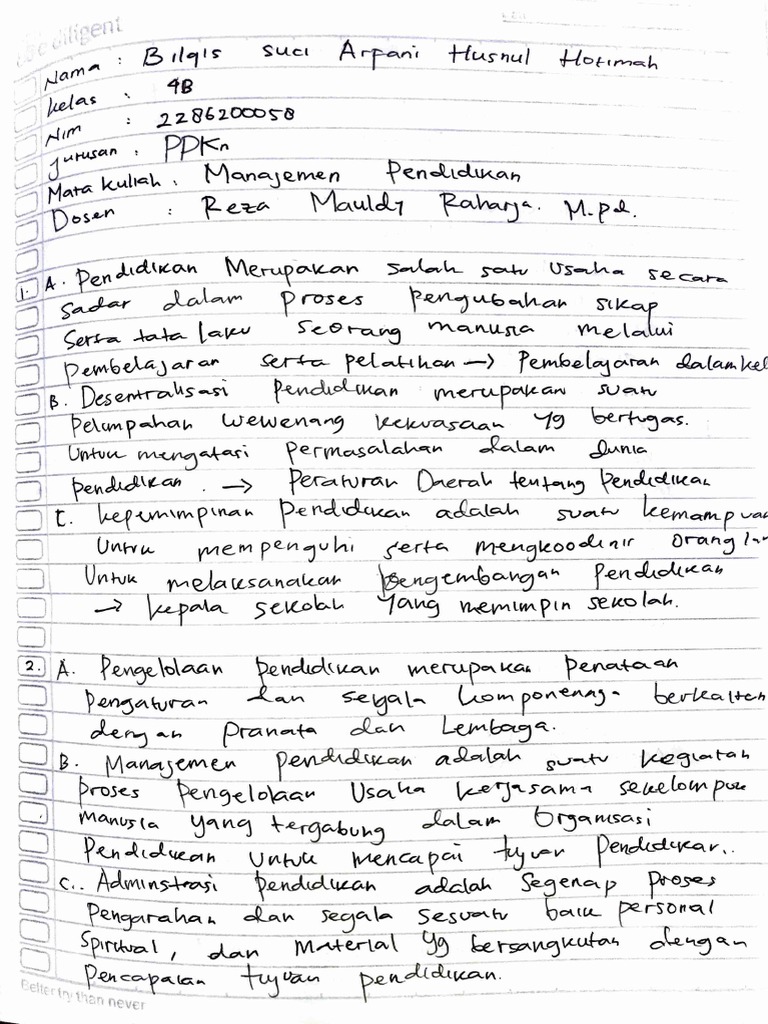 diligent
Nama : Bilqis suci Arpani Husnul Hotimah
Kelas : 4B
Nim : 2286200058
Jurusan : PPKn
Mata kuliah : Manajemen Pendidikan
Dosen : Reza Mauldy Raharja. M.pd.
1. A. Pendidikan Merupakan salah satu usaha secara
sadar dalam proses pengubahan sikap
serta tata laku seorang manusia melalui
pembelajaran serta pelatihan → Pembelajaran dalam kel
B. Desentralisasi pendidikan merupakan suatu
pelimpahan wewenang kekuasaan yg bertugas.
Untuk mengatasi permasalahan dalam dunia
pendidikan. → Peraturan Daerah tentang pendidikan
C. kepemimpinan pendidikan adalah suatu kemampuan
Untuk mempenguhi serta mengkoodinir orang lain
Untuk melaksanakan pengembangan pendidikan
→ kepala sekolah yang memimpin sekolah.
2. A. Pengelolaan pendidikan merupakan penataan
pengaturan dan segala komponennya berkaiten
dengan pranata dan Lembaga.
B. Manajemen pendidikan adalah suatu kegiatan
proses pengelolaan Usaha kerjasama sekelompok
manusia yang tergabung dalam Organisasi
pendidikan untuk mencapai tujuan pendidikan..
C.. Adminstrasi pendidikan adalah segenap proses
pengarahan dan segala sesuatu baik personal
spiritual, dan material yg bersangkutan dengan
pencapaian tujuan pendidikan.
Better try than never